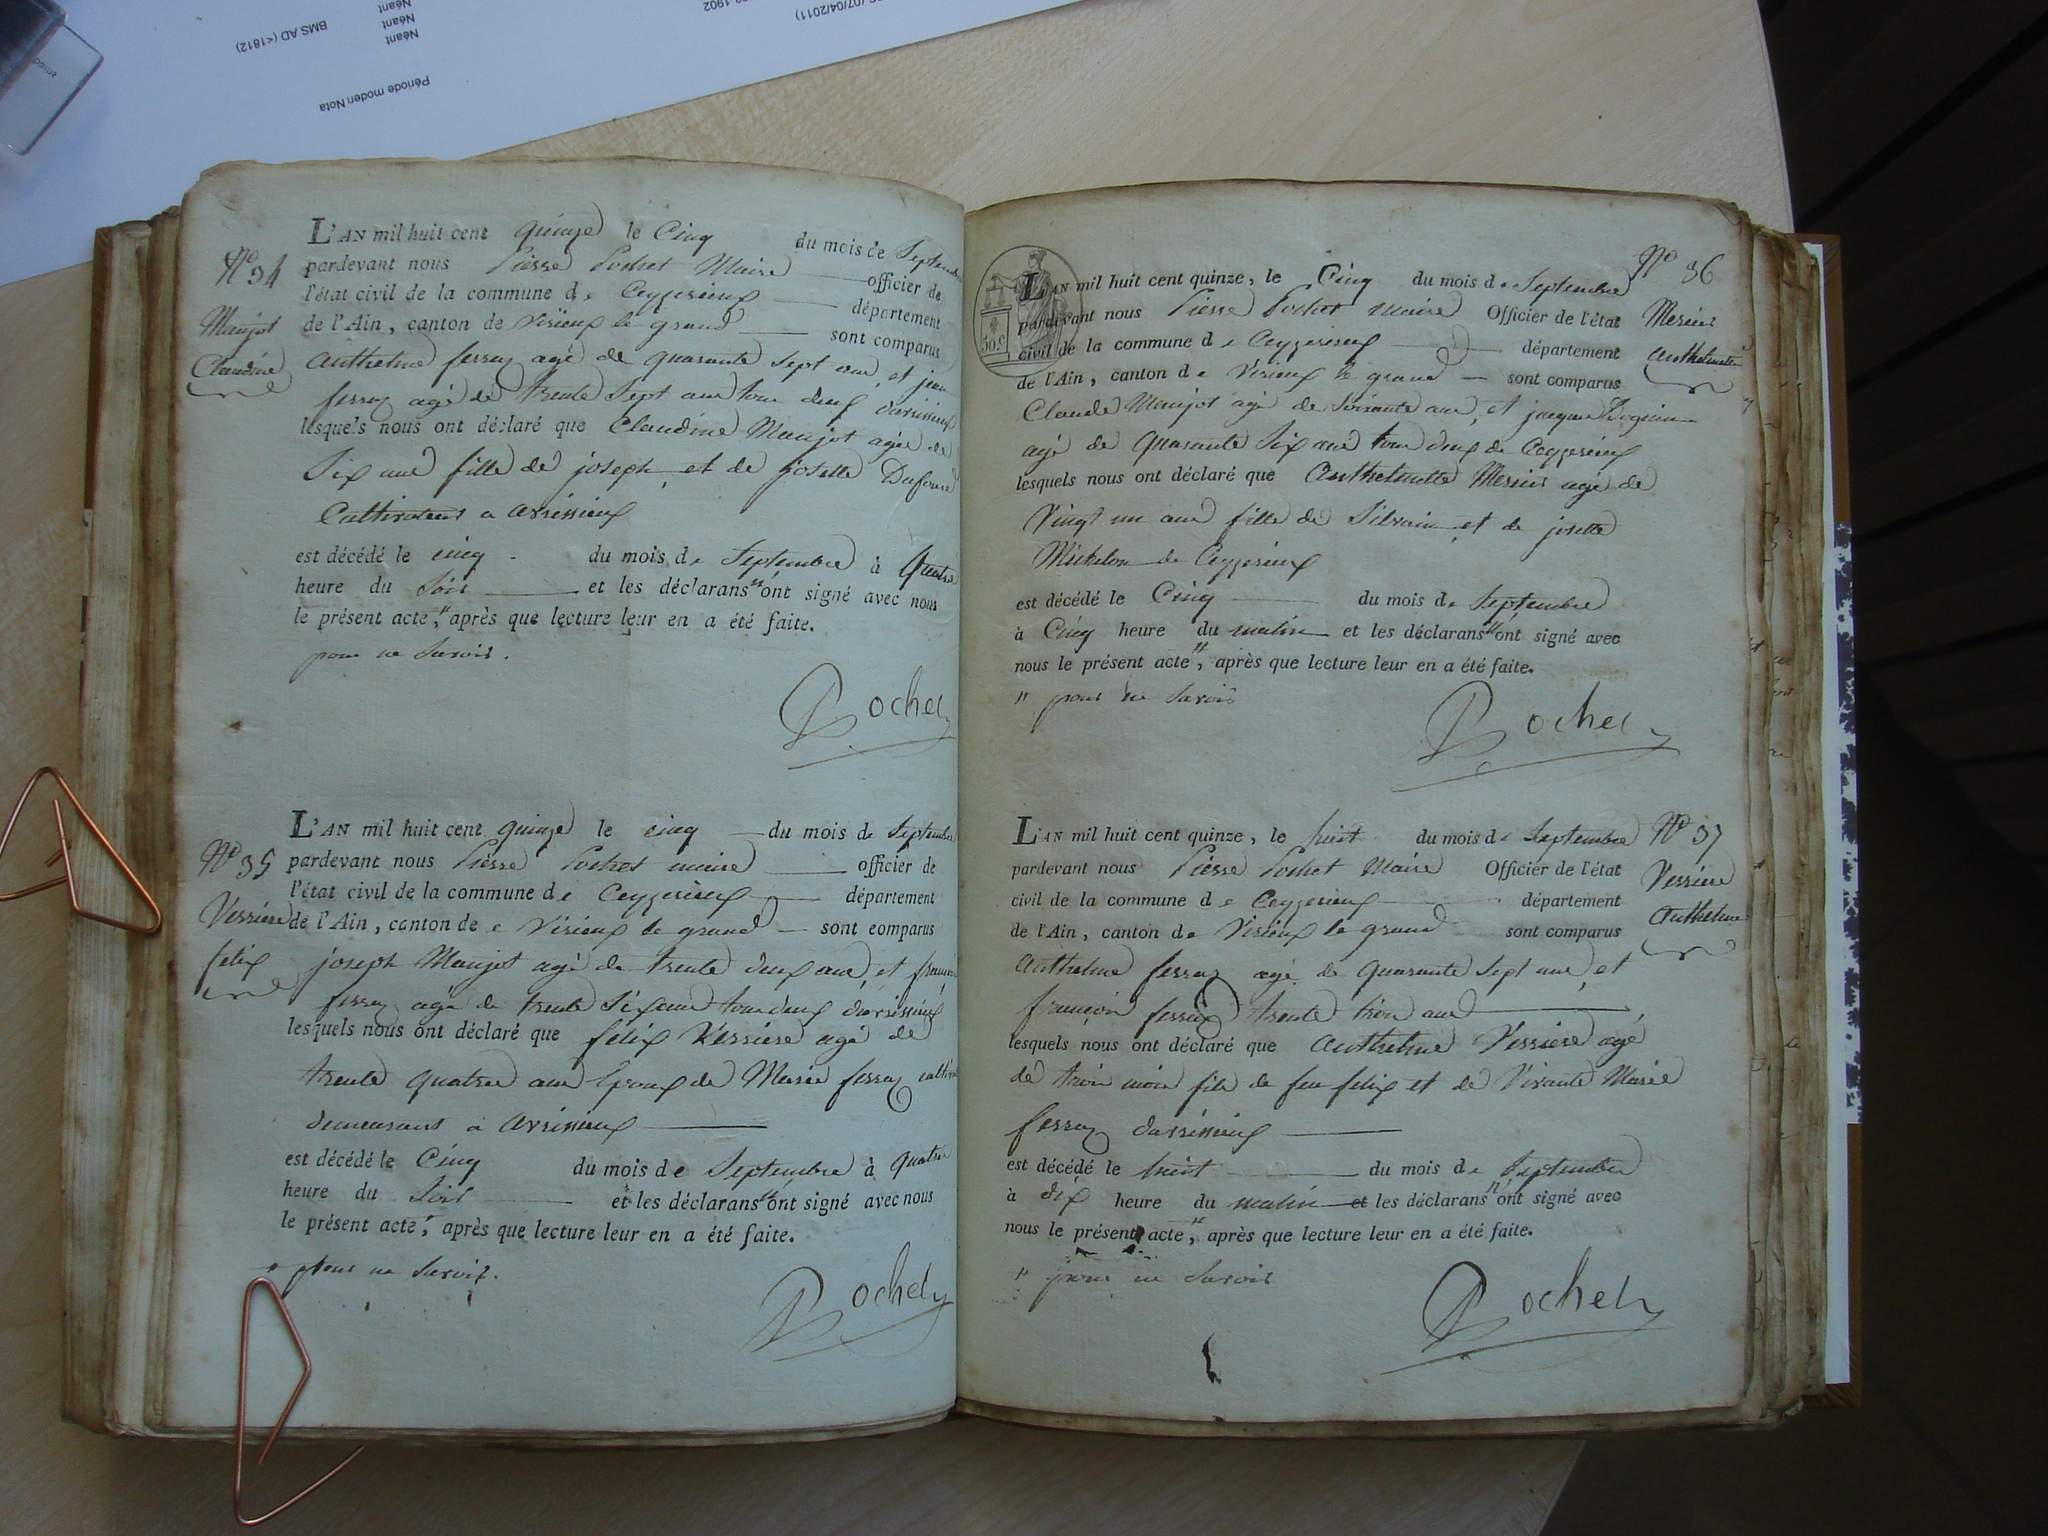 Période moden Nota
Néant
Néant
Néant
BMS AD (<1812)
(07/04/2011)
1902
L'AN mil huit cent quinze le Cinq du mois de Septembre
N.º 34
pardevant nous Pierre Pochet Maire officier de
l'état civil de la commune de Ceyzerieux département
Maujot
de l'Ain, canton de Virieux le grand sont comparus
Claudine
Anthelme ferraz agé de quarante Sept ans, et jean
ferraz agé de trente Sept ans tous deux d'arsisieux
lesquels nous ont déclaré que Claudine Maujot agée de
Six ans fille de joseph et de josette
Cultivateurs a arsissieux
est décédé le cinq du mois de Septembre à Quatre
heure du Soir et les déclarans " ont signé avec nous
le présent acte, " après que lecture leur en a été faite.
pour ne Savoir.
Pochet
L'AN mil huit cent quinze le cinq du mois de Septembre
N.º 35
pardevant nous Pierre Pochet maire officier de
l'état civil de la commune de Ceyzerieux département
Verriere
de l'Ain, canton de Virieux le grand sont comparus
félix
joseph Maujot agé de trente deux ans, et françois
ferraz agé de trente Six ans tous deux d'arsissieux
lesquels nous ont déclaré que félix Verriere agé de
trente quatre ans Epoux de Marie ferraz
demeurant a arsissieux
est décédé le Cinq du mois de Septembre à quatre
heure du Soir et les déclarans " ont signé avec nous
le présent acte, " après que lecture leur en a été faite.
" pour ne Savoir.
Pochet
50.c
N.º 36
L'AN mil huit cent quinze, le Cinq du mois de Septembre
pardevant nous Pierre Pochet maire Officier de l'état
Mercier
civil de la commune de Ceyzerieux département
Anthelmette
de l'Ain, canton de Virieux le grand sont comparus
Claude Maujot agé de Soixante ans, et jacques
agé de Quarante Six ans tous deux de Ceyzerieux
lesquels nous ont déclaré que Anthelmette Mercier agé de
Vingt un ans fille de Silvain et de josette
Michelon de Ceyzerieux
est décédé le Cinq du mois de Septembre
à Cinq heure du matin et les déclarans " ont signé avec
nous le présent acte ", après que lecture leur en a été faite.
" pour ne Savoir
Pochet
L'AN mil huit cent quinze, le huit du mois de Septembre
N.º 37
pardevant nous Pierre Pochet Maire Officier de l'état
Verriere
civil de la commune de Ceyzerieux département
Anthelme
de l'Ain, canton de Virieux le grand sont comparus
Anthelme ferraz agé de Quarante Sept ans, et
françois ferraz trente trois ans
lesquels nous ont déclaré que Anthelme Verriere agé
de trois mois fils de feu felix et de Vivante Marie
ferraz d'arsissieux
est décédé le huit du mois de Septembre
à dix heure du matin et les déclarans " ont signé avec
nous le présent acte ", après que lecture leur en a été faite.
" pour ne Savoir
Pochet